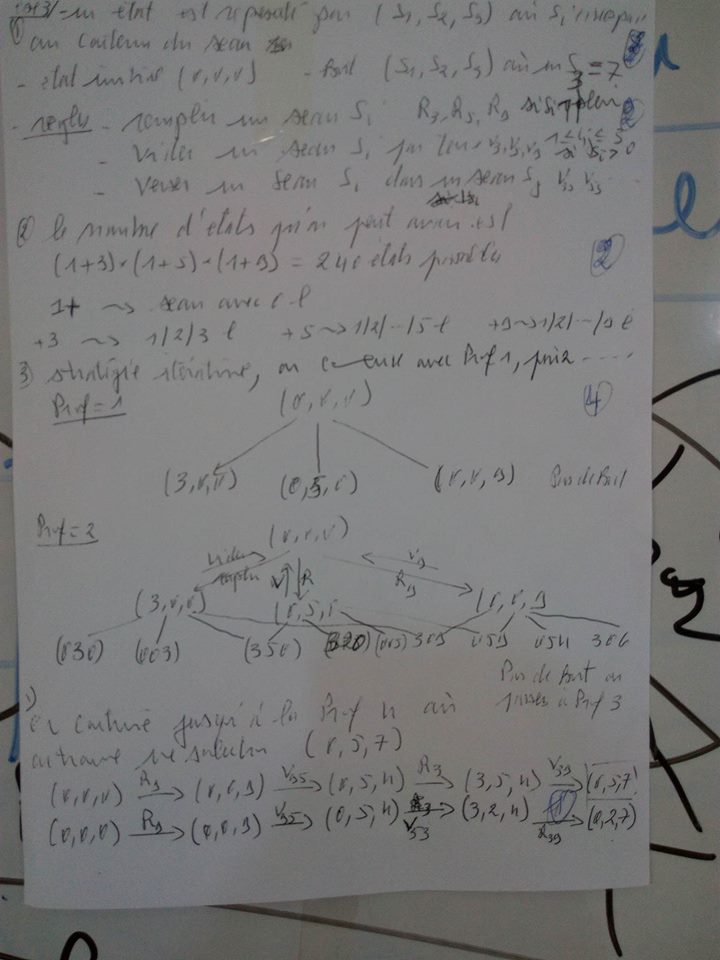 un état est représenté par (S1, S2, S3) où Si
1) au contenu du seau
- état initial (0,0,0) - But (S1, S2, S3) où un S3 = 7
- règles - remplir un seau Si R3, R5, R9
- Vider un seau Si V3, V5, V9 si Si > 0
- Verser un seau Si dans un seau Sj
2) le nombre d'états qu'on peut avoir est
(1+3)*(1+5)*(1+9) = 240 états possibles
2
1+ ⇝ seau avec 0 l
+3 ⇝ 1/2/3 l +5 ⇝ 1/2/--/5 l +9 ⇝ 1/2/--/9 l
3) stratégie itérative, on commence avec Prof 1, puis 2 .....
Prof = 1
(0,0,0)
4
(3,0,0) (0,5,0) (0,0,9) Pas de But
Prof = 2
(0,0,0)
vider
remplir
V R
V9
R9
(3,0,0) (0,5,0) (0,0,9)
(030) (003) (350) (320) (005) 309 059 054 306
Pas de But on
passe à Prof 3
on continue jusqu'à la Prof 4 où
on trouve une solution (0,5,7)
(0,0,0) R9→ (0,0,9) V95→ (0,5,4) R3→ (3,5,4) V39→ (0,5,7)
(0,0,0) R9→ (0,0,9) V95→ (0,5,4) V53→ (3,2,4) R39→ (0,2,7)